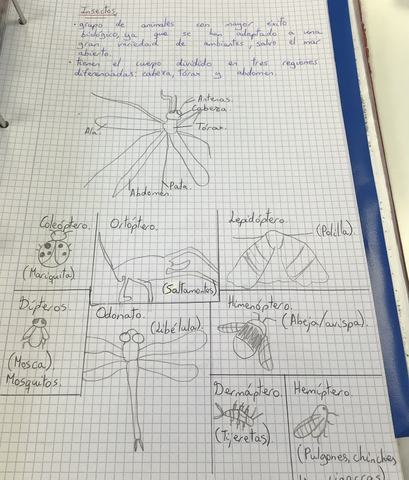 Insectos
· grupo de animales con mayor éxito
biológico, ya que se han adaptado a una
gran variedad de ambientes, salvo el mar
abierto.
· tienen el cuerpo dividido en tres regiones
diferenciadas: cabeza, tórax y abdomen.
Antenas.
Cabeza.
Tórax.
Ala.
Pata.
Abdomen.
Coleóptero.
(Mariquita)
Ortóptero.
(Saltamontes)
Lepidóptero.
(Polilla)
Dípteros.
(Mosca)
Mosquitos.
Odonato.
(Libélula).
Himenóptero.
(Abeja/avispa).
Dermáptero.
(Tijeretas)
Hemíptero.
(Pulgones, chinches